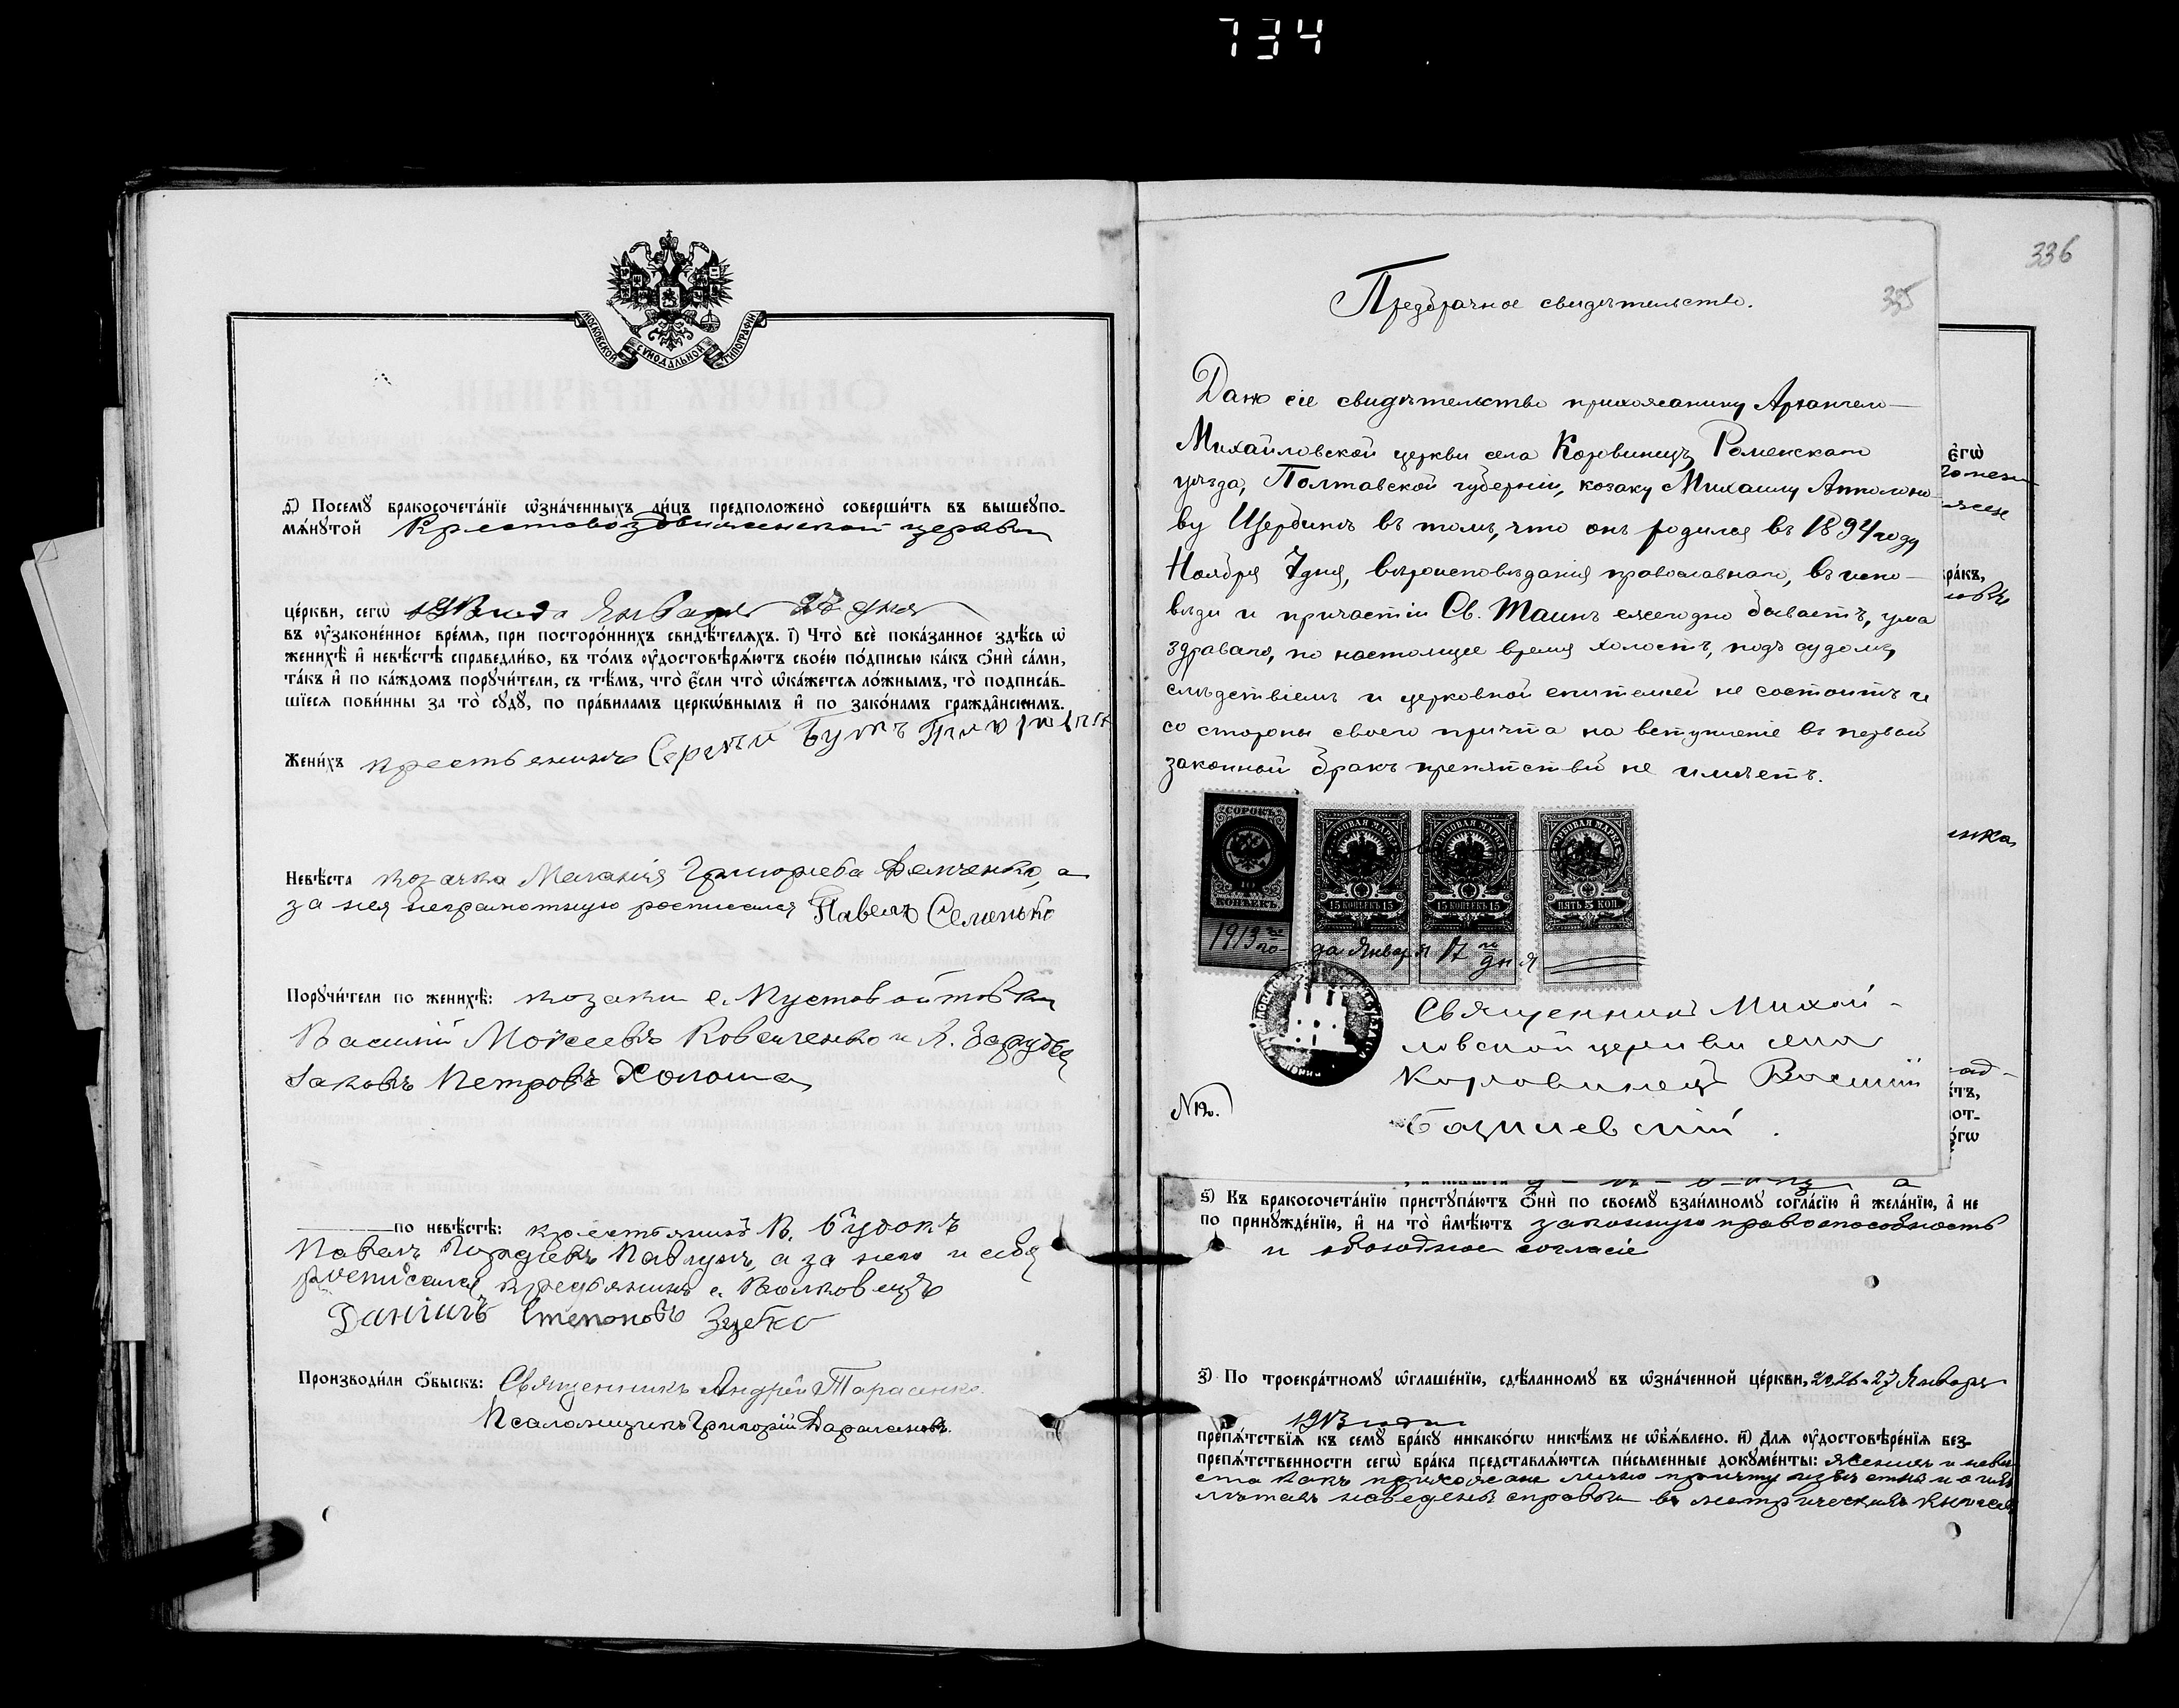 734
МОСКОВСКОЙ СУНОДАЛЬНОЙ ТИПОГРАФІИ
д҃) Посемꙋ̀ бракосочета́нїе ѡ҆зна́ченныхъ ли́цъ предположено̀ соверши́ть въ вышеꙋпо-
мѧ́нꙋтой Крестовоздвиженской церкви
це́ркви, сегѡ̀ 1913 года Января 27 дня
въ ᲂу҆зако́ненное вре́мѧ, при посторо́ннихъ свидѣ́телѧхъ. і҃) Что̀ всѐ пока́занное здѣ́сь ѡ҆
женихѣ̀ и҆ невѣ́стѣ справедли́во, въ то́мъ ᲂу҆достовѣрѧ́ютъ свое́ю по́дписью ка́къ ѻ҆нѝ са́ми,
та́къ и҆ по ка́ждомъ порꙋчи́тели, съ тѣ́мъ, что̀ є҆́сли что̀ ѡ҆ка́жетсѧ ло́жнымъ, то̀ подписа́в-
шїесѧ пови́нны за то̀ сꙋдꙋ̀, по пра́виламъ церкѡ́внымъ и҆ по зако́намъ гражда̑нскимъ.
Жени́хъ крестьянинъ Сергѣй Бутъ
Невѣ́ста козачка Меланія Григорьева Демченко, а
за нея неграмотную росписался Павелъ Семенько
Порꙋчи́тели по женихѣ̀: козаки с. Пустовойтовки
Василій Моисеевъ Коваленко и
Іаковъ Петровъ Холоша
по невѣ́стѣ: крестьянинъ
Павелъ Павлунъ, а за него и себя
росписался крестьянинъ с. Волковецъ
Даніилъ Степановъ Зубко
Производи́ли ѻ҆́быскъ: Священникъ Андрей Тарасенко.
Псаломщикъ Григорій
336
335
Предбрачное свидѣтельство.
Дано сіе свидѣтельство прихожанину Архангело-
Михайловской церкви села Коровинецъ, Роменскаго
уѣзда, Полтавской губерніи, козаку Михаилу Апполоно-
ву Щербинѣ въ томъ, что онъ родился въ 1894 году
Ноября 7 дня, вѣроисповѣданія православнаго, въ испо-
вѣди и причастіи Св. Таинъ ежегодно бываетъ, ума
здраваго, по настоящее время холостъ, подъ судомъ,
слѣдствіемъ и церковной епитеміей не состоитъ и
со стороны своего причта на вступленіе въ первый
законный бракъ препятствій не имѣетъ.
СОРОКЪ
КОПѢЕКЪ
ГЕРБОВАЯ МАРКА
15 КОПѢЕКЪ 15
ГЕРБОВАЯ МАРКА
15 КОПѢЕКЪ 15
ГЕРБОВАЯ МАРКА
ПЯТЬ 5 КОП.
1913 го года Января 17 го дня
Священникъ Михай-
ловской церкви села
Коровинецъ Василій
Базилевскій.
№ 19.
є҆гѡ̀
бра́къ,
ѕ҃) Къ бракосочета́нїю пристꙋпа́ютъ ѻ҆нѝ по своемꙋ̀ взаи́мномꙋ согла́сїю и҆ жела́нїю, а҆ не
по принꙋжде́нїю, и҆ на то̀ и҆мѣ́ютъ законную правоспособность
и свободное согласіе
з҃) По троекра́тномꙋ ѡ҆глаше́нїю, сдѣ́ланномꙋ въ ѡ҆зна́ченной це́ркви, 20, 26 и 27 Января
1913 года
препѧ́тствїѧ къ семꙋ̀ бра́кꙋ никако́гѡ никѣ́мъ не ѡ҆б̾ѧ́влено. и҃) Длѧ ᲂу҆достовѣре́нїѧ без-
препѧ́тственности сегѡ̀ бра́ка представлѧ́ютсѧ пи́сьменные докꙋме́нты: женихъ и невѣ-
ста какъ прихожане лично причту извѣстны и о ихъ
лѣтахъ наведены справки въ метрическихъ книгахъ